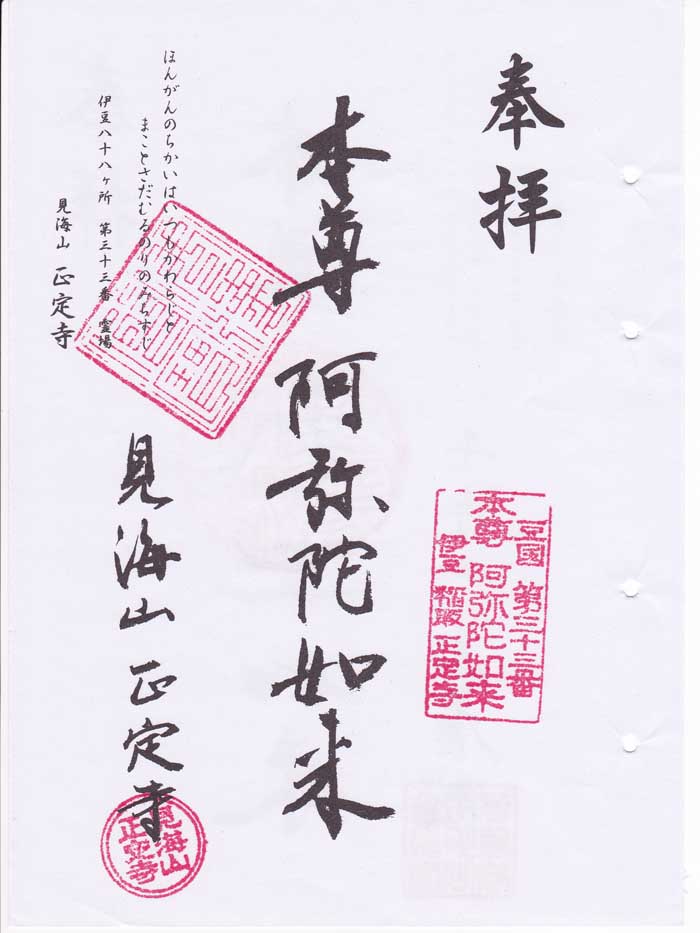 奉拝
豆国 第三十三番
本尊 阿弥陀如来
伊豆 稲取 正定寺
本尊 阿弥陀如来
見海山 正定寺
見海山
正定寺
ほんがんのちかいはいつもかわらじと
まことさだむるのりのみちすじ
伊豆八十八ヶ所 第三十三番 霊場
見海山 正定寺